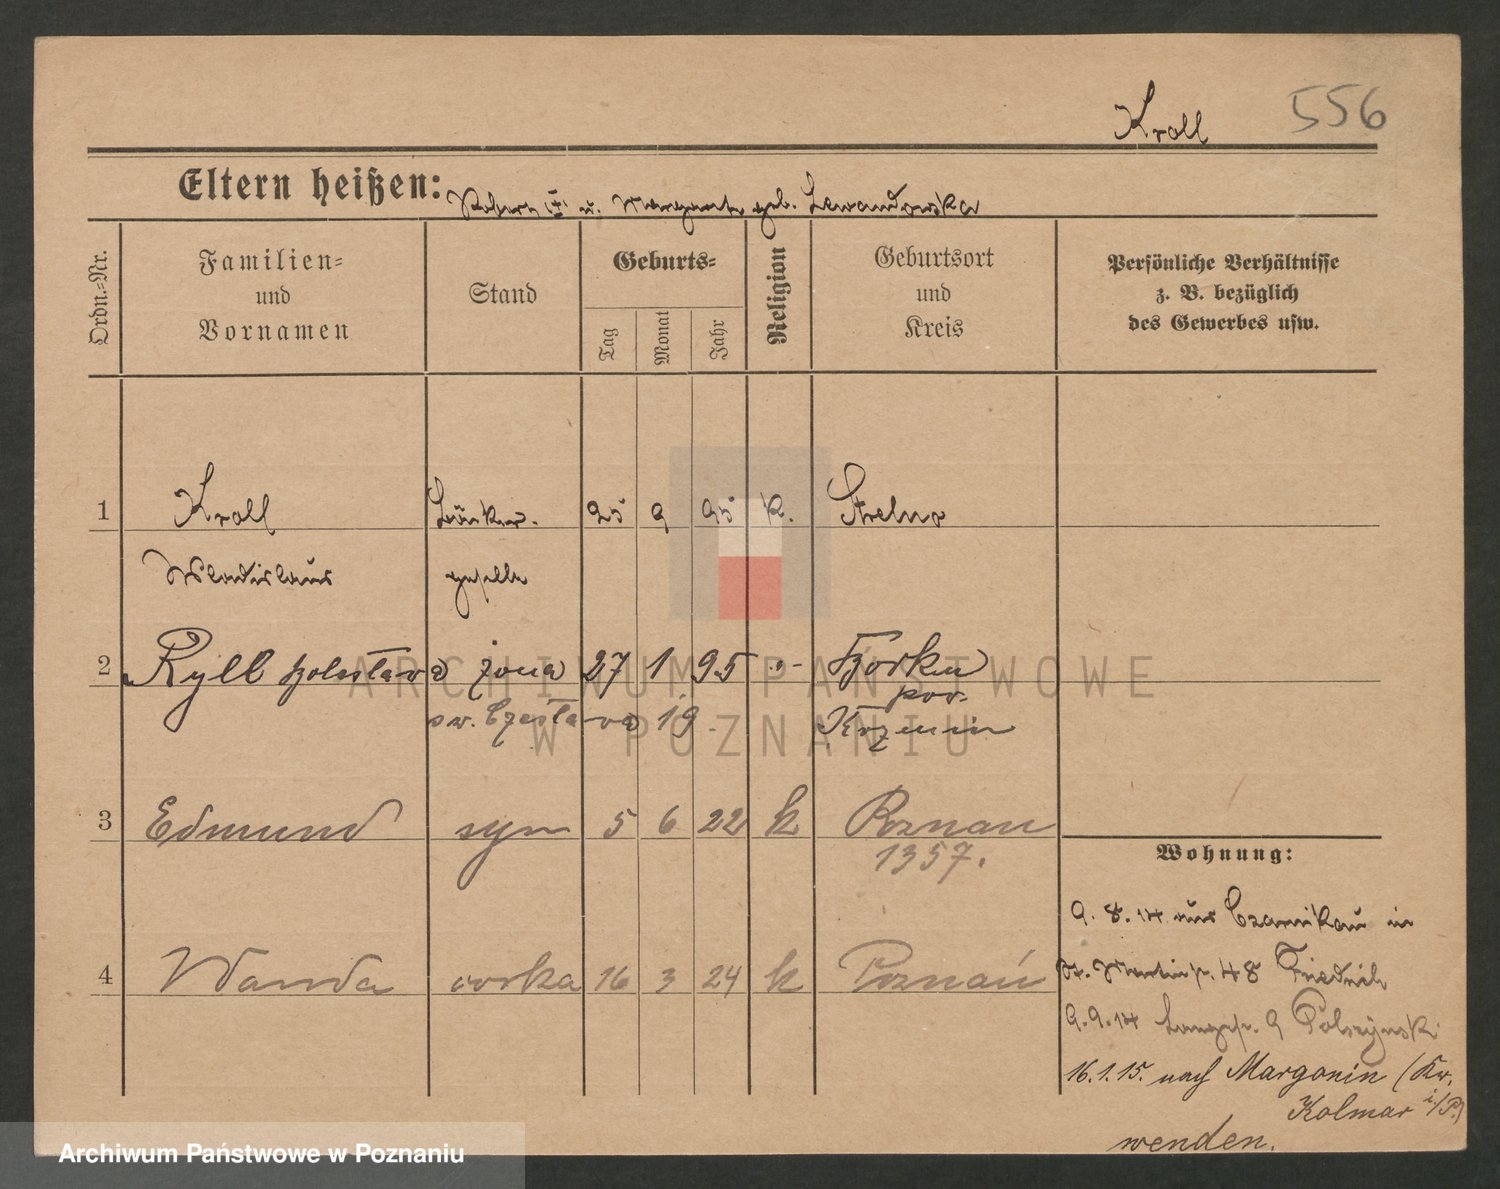 Kroll 556
Eltern heißen: u. geb. Lewandowska
Ordn.-Nr.
Familien-
und
Vornamen
Stand
Geburts-
Tag
Monat
Jahr
Religion
Geburtsort
und
Kreis
Persönliche Verhältnisse
z. B. bezüglich
des Gewerbes usw.
1 Kroll 25 9 95 k. Strelno
Wladislaus geselle
2 Ryll żona 27 1 95 -"- Borku
pow.
19 Kozmin
3 Edmund syn 5 6 22 k Poznan
1357.
4 Wanda corka 16 3 24 k Poznań
Wohnung:
9. 8. 14 aus Czarnikau in
St. Martinstr. 48 Friedrich
9. 9. 14 Langestr. 9
16. 1. 15. nach Margonin (Kr.
Kolmar i/P.)
wenden.
ARCHIWUM PAŃSTWOWE
W POZNANIU
Archiwum Państwowe w Poznaniu